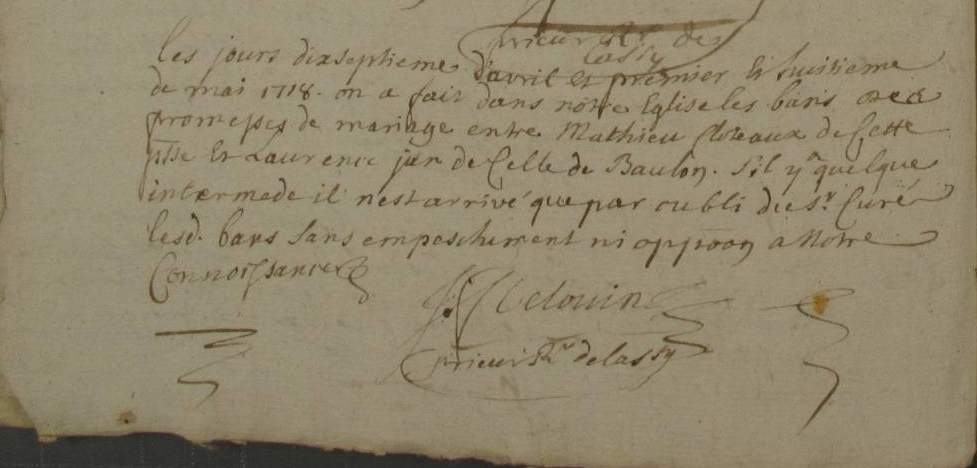 prieur Rr de
Lassy
les jours dixseptieme d'avril et premier et huitieme
de mai 1718. on a fait dans notre Eglise les bans
promesses de mariage entre Mathieu Cloteaux de Cette
psse Et Laurence jan de Celle de Baulon. s'il y a quelque
intermede il nest arrivé que par oubli du sr. Curé
lesd. bans sans empeschement ni oppoon a Notre
Connoissance
prieur Rr delassy